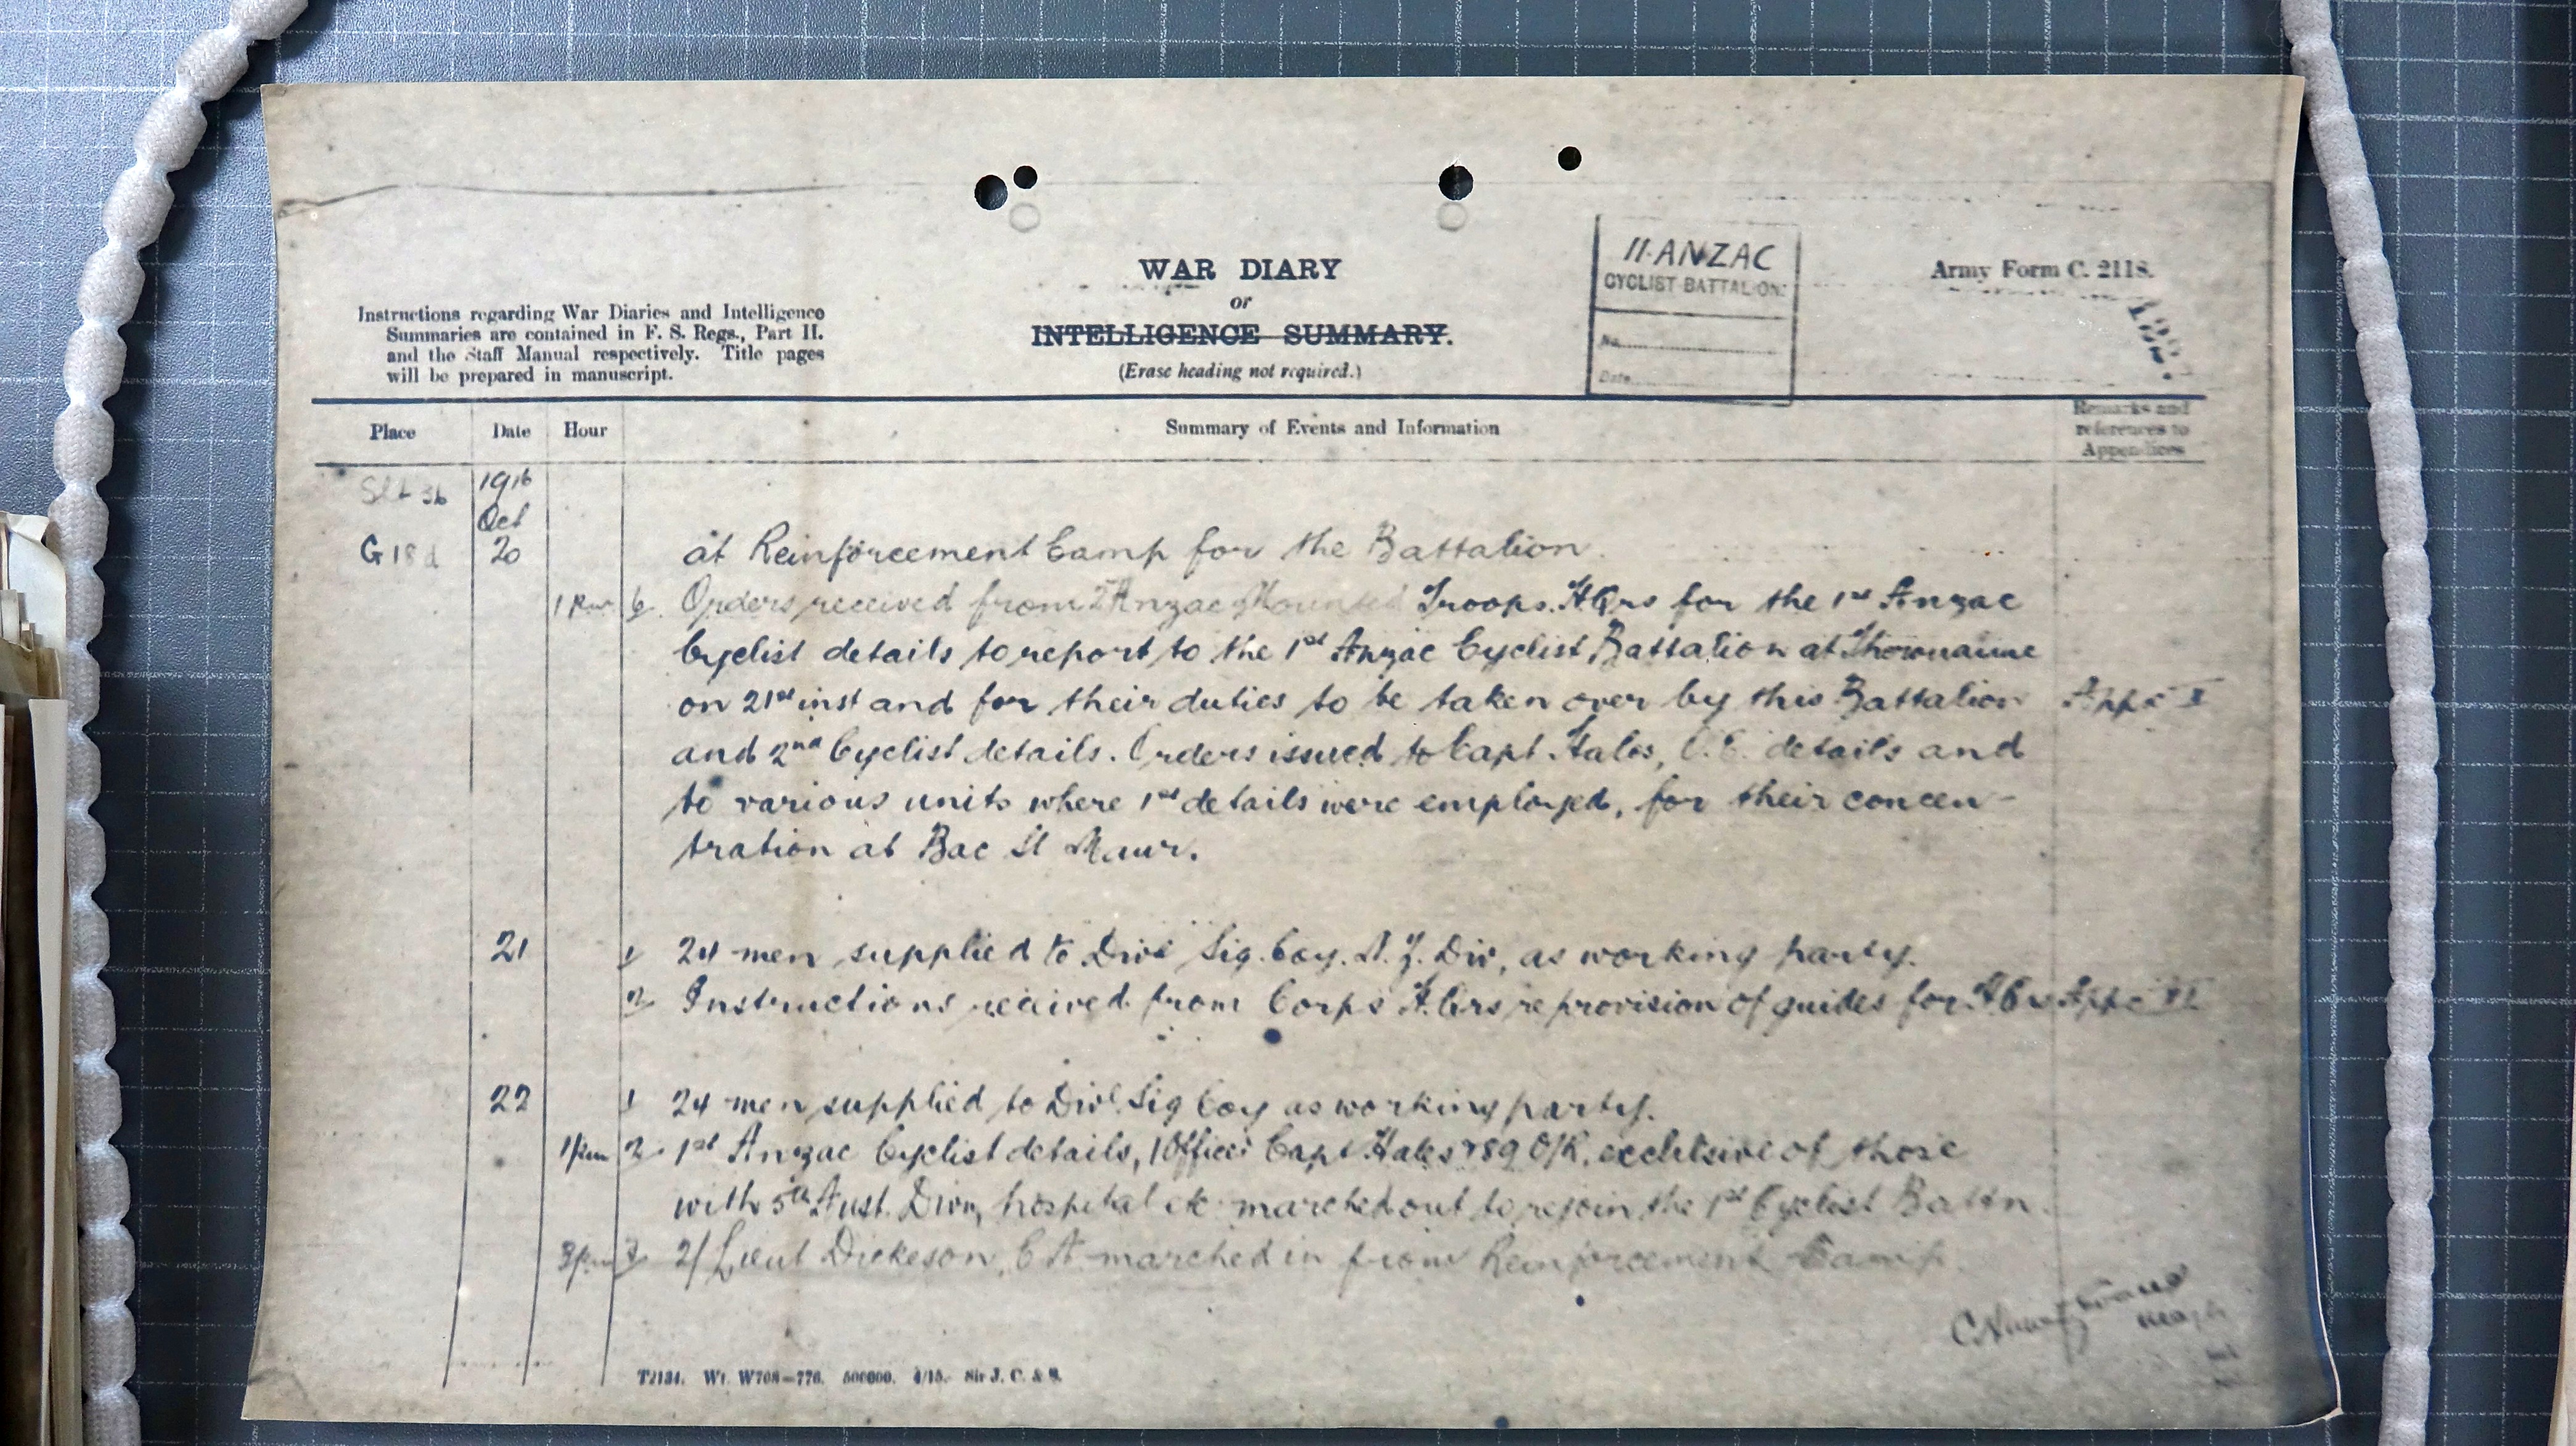 II ANZAC
CYCLIST BATTALION.
No.
Date
WAR DIARY
or
INTELLIGENCE SUMMARY.
(Erase heading not required.)
Army Form C. 2118.
Instructions regarding War Diaries and Intelligence
Summaries are contained in F. S. Regs., Part II.
and the Staff Manual respectively. Title pages
will be prepared in manuscript.
Place Date Hour Summary of Events and Information Remarks and references to Appendices
36 1916
Oct
G 18 d 20 at Reinforcement Camp for the Battalion.
1 pm 6 Orders received from 2 Anzac Mounted Troops. HQrs for the 1st Anzac
Cyclist details to report to the 1st Anzac Cyclist Battalion at
on 21st inst and for their duties to be taken over by this Battalion App
and 2nd Cyclist details. Orders issued to Capt. Hales, details and
to various units where 1st details were employed, for their concen-
tration at Bac St Maur.
21 1 24 men supplied to Divl Sig. Coy. N. Z. Div, as working party.
2 Instructions received from Corps H.Qrs re provision of guides for App
22 1 24 men supplied to Divl. Sig Coy as working party.
1 pm 2 1st Anzac Cyclist details, 1 Officer Capt Hales & 89 O/R, exclusive of those
with 5th Aust. Divn, hospital etc marched out to rejoin the 1st Cyclist Battn.
3 pm 3 2/Lieut Dickeson, C A marched in from Reinforcement Camp.
T2134. Wt. W708—776. 500000. 4/15. Sir J. C. & S.